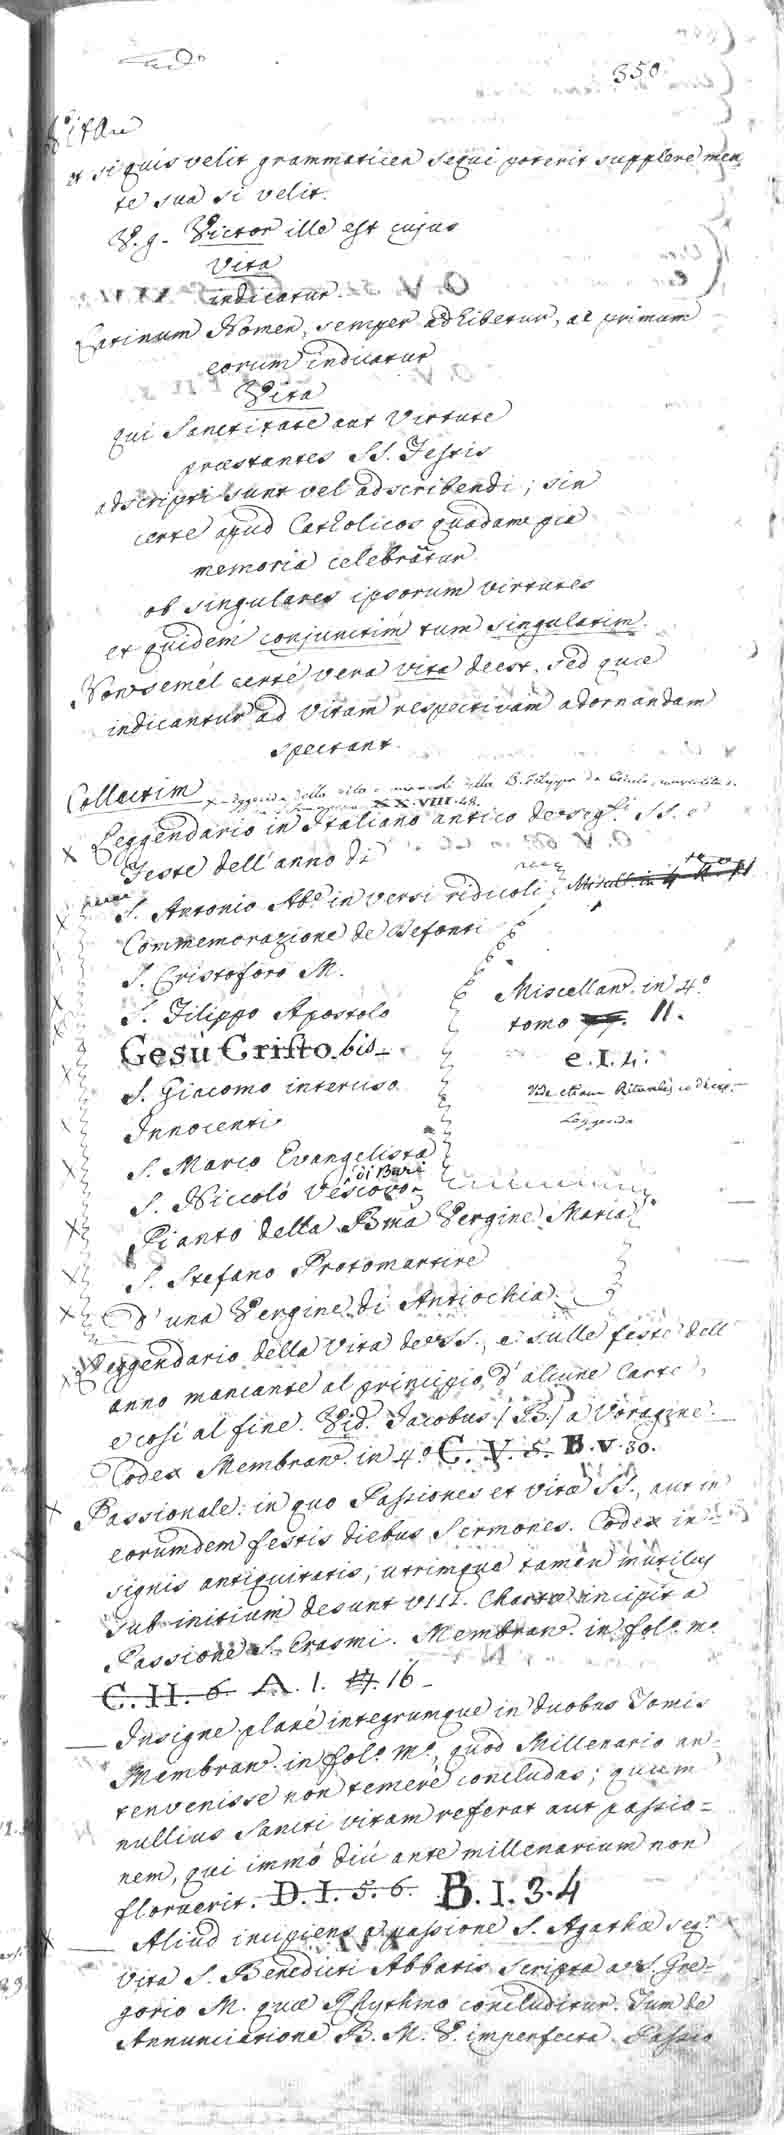 350.
Vitae
et si quis velit grammaticen sequi poterit supplere men
te sua si velit.
V. g. Victor ille est cujus
Vita
indicatur.
Latinum Nomen, semper adhibetur, ac primum
eorum indicatur
Vita
qui Sanctitate aut Virtute
præstantes SS. Festis
adscripti sunt vel adscribendi; sin
certe apud Catholicos quadam pia
memoria celebrãtur
ob singulares ipsorum virtutes
et quidem conjunctim tum singulatim.
Non semel certé vera vita deest. sed quæ
indicantur ad Vitam respectivam adornandam
spectant.
Collectim
Leggenda della vita e miracoli della B. Filippo da
XX.VIII.48.
Leggendario in Italiano antico de segti. SS. e
Feste dell' anno di
S. Antonio Abe. in versi ridicoli Miscell. in 4
Commemorazione de Defonti
S. Cristoforo M.
S. Filippo Apostolo
Miscellan. in 4.º
tomo II.
Gesù Cristo bis
e. I. 4.
S. Giacomo interciso
Vide etiam Rituales
Leggenda
Innocenti
S. Marco Evangelista
S. Niccoló Vescovo di Bari
Pianto della Bma Vergine Maria
S. Stefano Protomartire
D' una Vergine di Antiochia.
Leggendario della Vita de SS., e sulle feste dell'
anno mancante al principio d' alcune Carte,
e cosí al fine. Vid. Jacobus (B.) a Voragine.
Codex Membran. in 4.º C. V. 5. B. V. 30.
Passionale: in quo Passiones et vitæ SS., aut in
eorumdem festis diebus Sermones. Codex in-
signis antiquitatis; utrimque tamen mutilus
sub initium desunt VIII. Chartæ incipit a
Passione S. Erasmi. Membran. in fol.º m.º
C. H. 6. A. 1. 16
— Insigne plané integrumque in duobus Tomis
Membran. in fol.º m.º, quod Millenario an-
tevenisse non temeré concludas; quum
nullius Sancti vitam referat aut passio=
nem, qui immó diú ante millenarium non
floruerit. D. I. 5. 6. B. I. 3. 4
— Aliud incipiens a passione S. Agathæ seq.
Vita S. Benedicti Abbatis scripta a S. Gre-
gorio M. quæ Rhythmo concluditur. Tum de
Annunciatione B. M. V. imperfecta. Passio